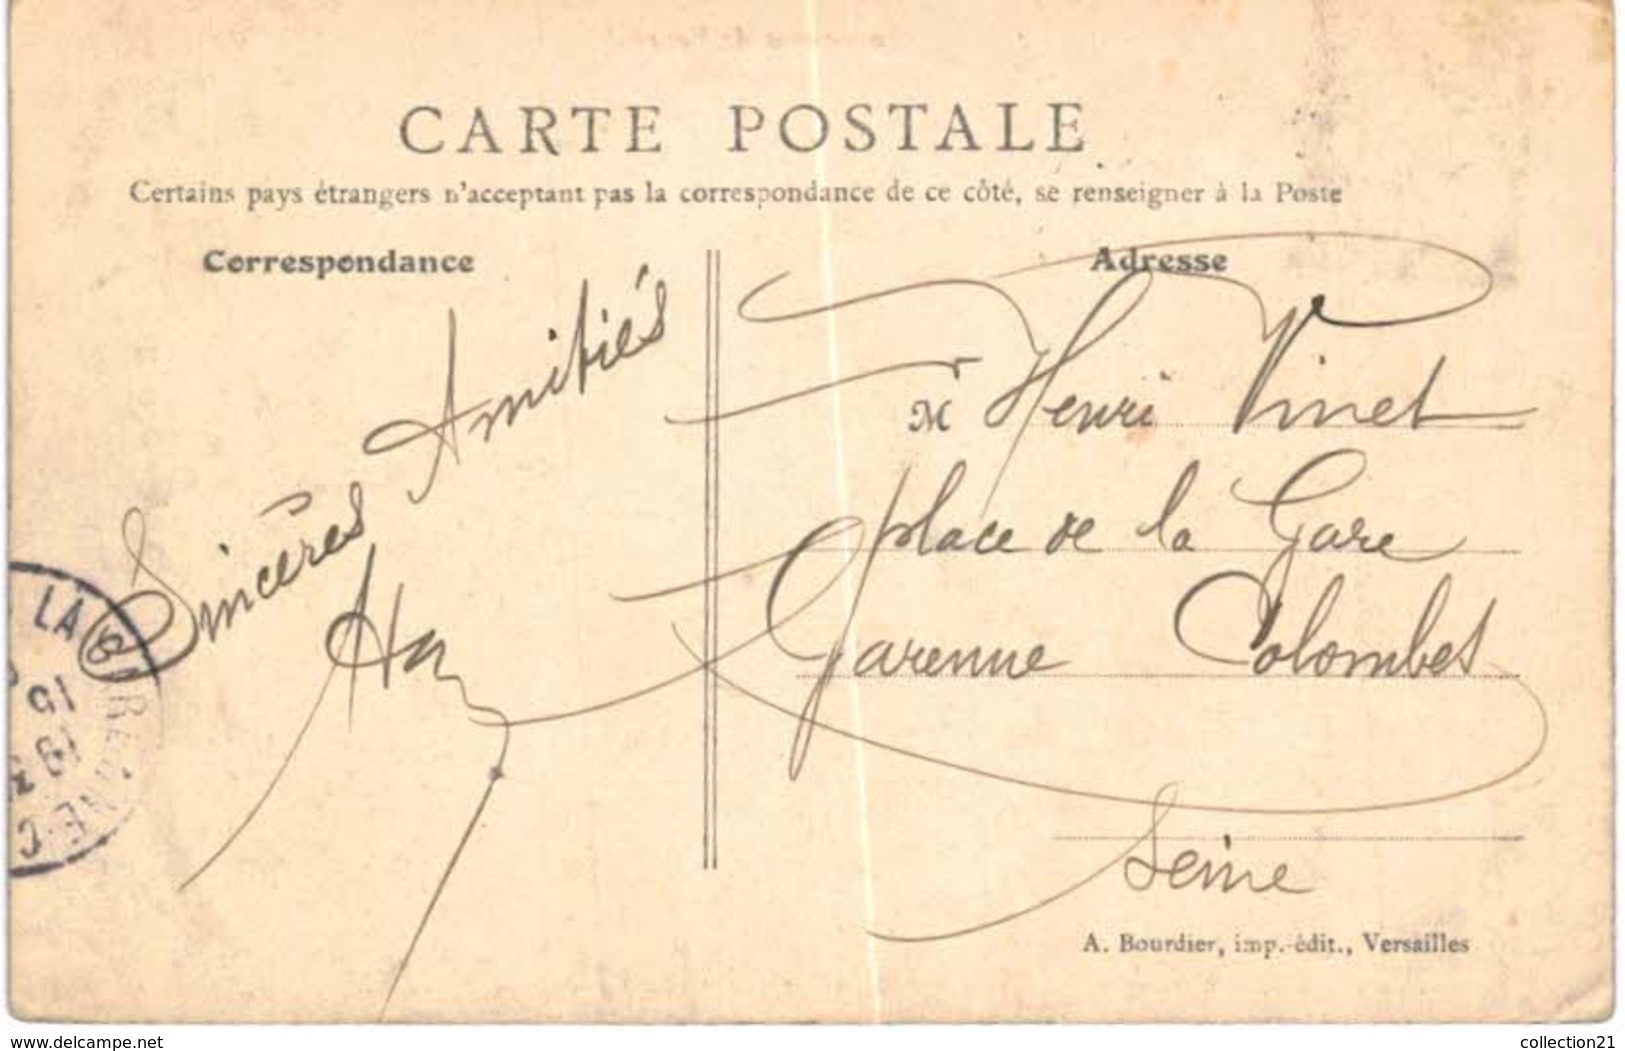 CARTE POSTALE
Certains pays étrangers n'acceptant pas la correspondance de ce côté, se renseigner à la Poste
Correspondance
Adresse
Sincères Amitiés
M Henri Vinet
place de la Gare
Garenne Colombes
Seine
LA GARENNE-C
15
A. Bourdier, imp.-édit., Versailles
www.delcampe.net
collection21